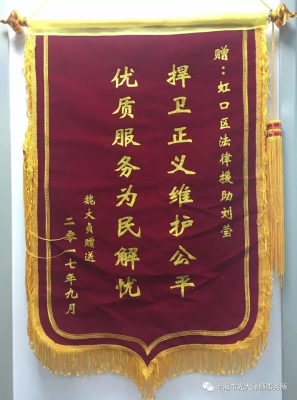 赠：虹口区法律援助刘莹
捍卫正义维护公平
优质服务为民解忧
魏大贞赠送
二零一七年九月
上海市光大律师事务所